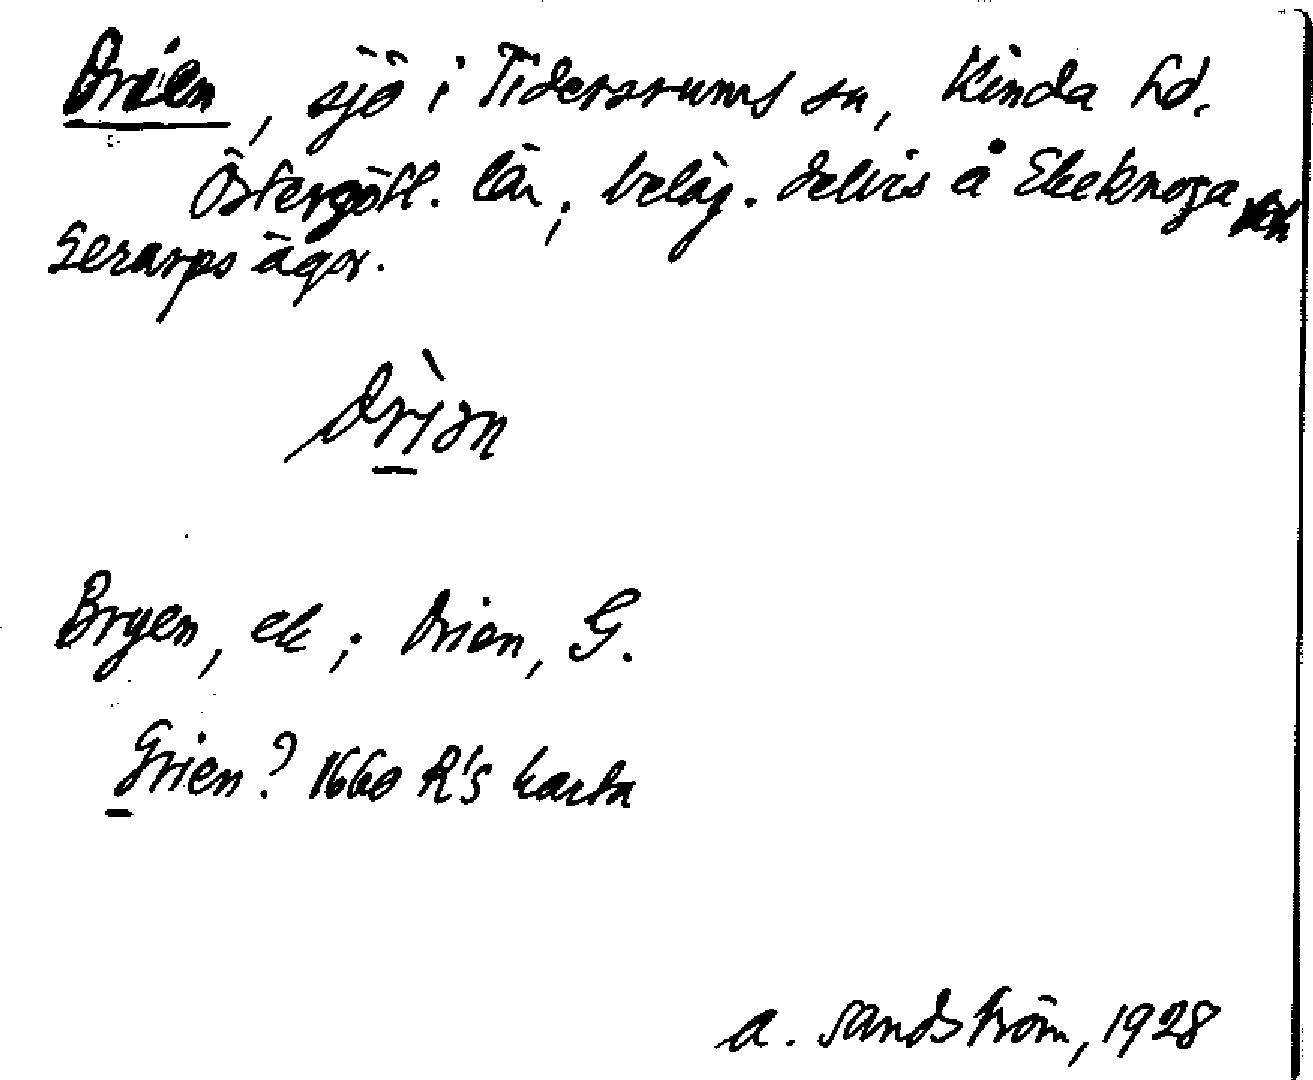 Drien, sjö i Tidersrums sn, Kinda hd.
Östergötl. län; beläg. delvis å Ekeknoga och
Gerarps ägor.
drìan
Bryen, ek; Drien, G.
Grien? 1660 R's karta
A. Sandström, 1928